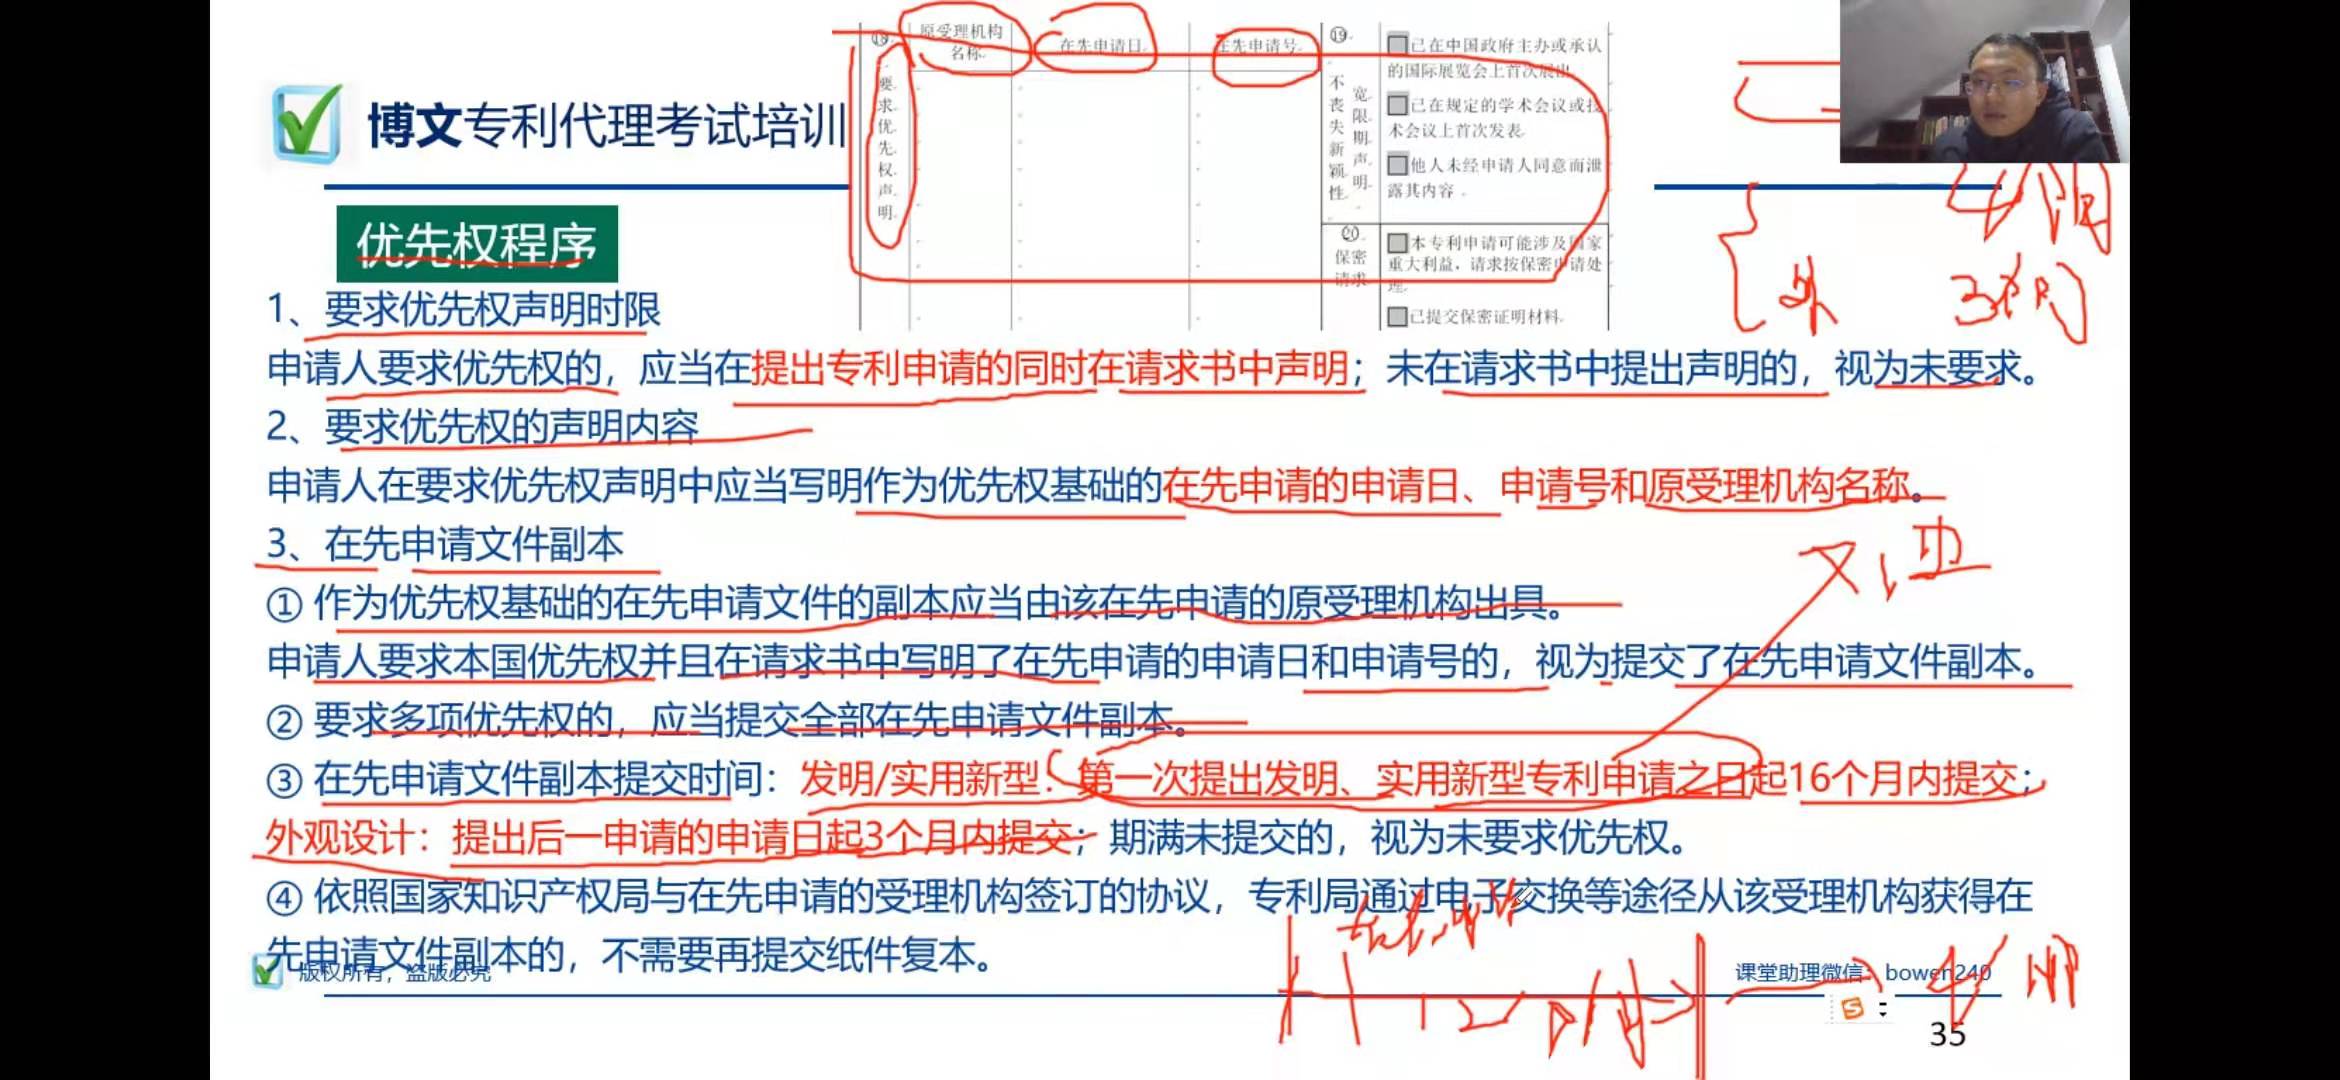 博文专利代理考试培训
⑱
要求优先权声明
原受理机构名称
在先申请日
在先申请号
⑲
不丧失新颖性
宽限期声明
已在中国政府主办或承认
的国际展览会上首次展出
已在规定的学术会议或技
术会议上首次发表
他人未经申请人同意而泄
露其内容
⑳
保密
请求
本专利申请可能涉及国家
重大利益，请求按保密申请处
理
已提交保密证明材料
优先权程序
1、要求优先权声明时限
申请人要求优先权的，应当在提出专利申请的同时在请求书中声明；未在请求书中提出声明的，视为未要求。
2、要求优先权的声明内容
申请人在要求优先权声明中应当写明作为优先权基础的在先申请的申请日、申请号和原受理机构名称。
3、在先申请文件副本
① 作为优先权基础的在先申请文件的副本应当由该在先申请的原受理机构出具。
申请人要求本国优先权并且在请求书中写明了在先申请的申请日和申请号的，视为提交了在先申请文件副本。
② 要求多项优先权的，应当提交全部在先申请文件副本。
③ 在先申请文件副本提交时间：发明/实用新型：第一次提出发明、实用新型专利申请之日起16个月内提交；
外观设计：提出后一申请的申请日起3个月内提交；期满未提交的，视为未要求优先权。
④ 依照国家知识产权局与在先申请的受理机构签订的协议，专利局通过电子交换等途径从该受理机构获得在
先申请文件副本的，不需要再提交纸件复本。
版权所有，盗版必究
课堂助理微信：bowen240
35